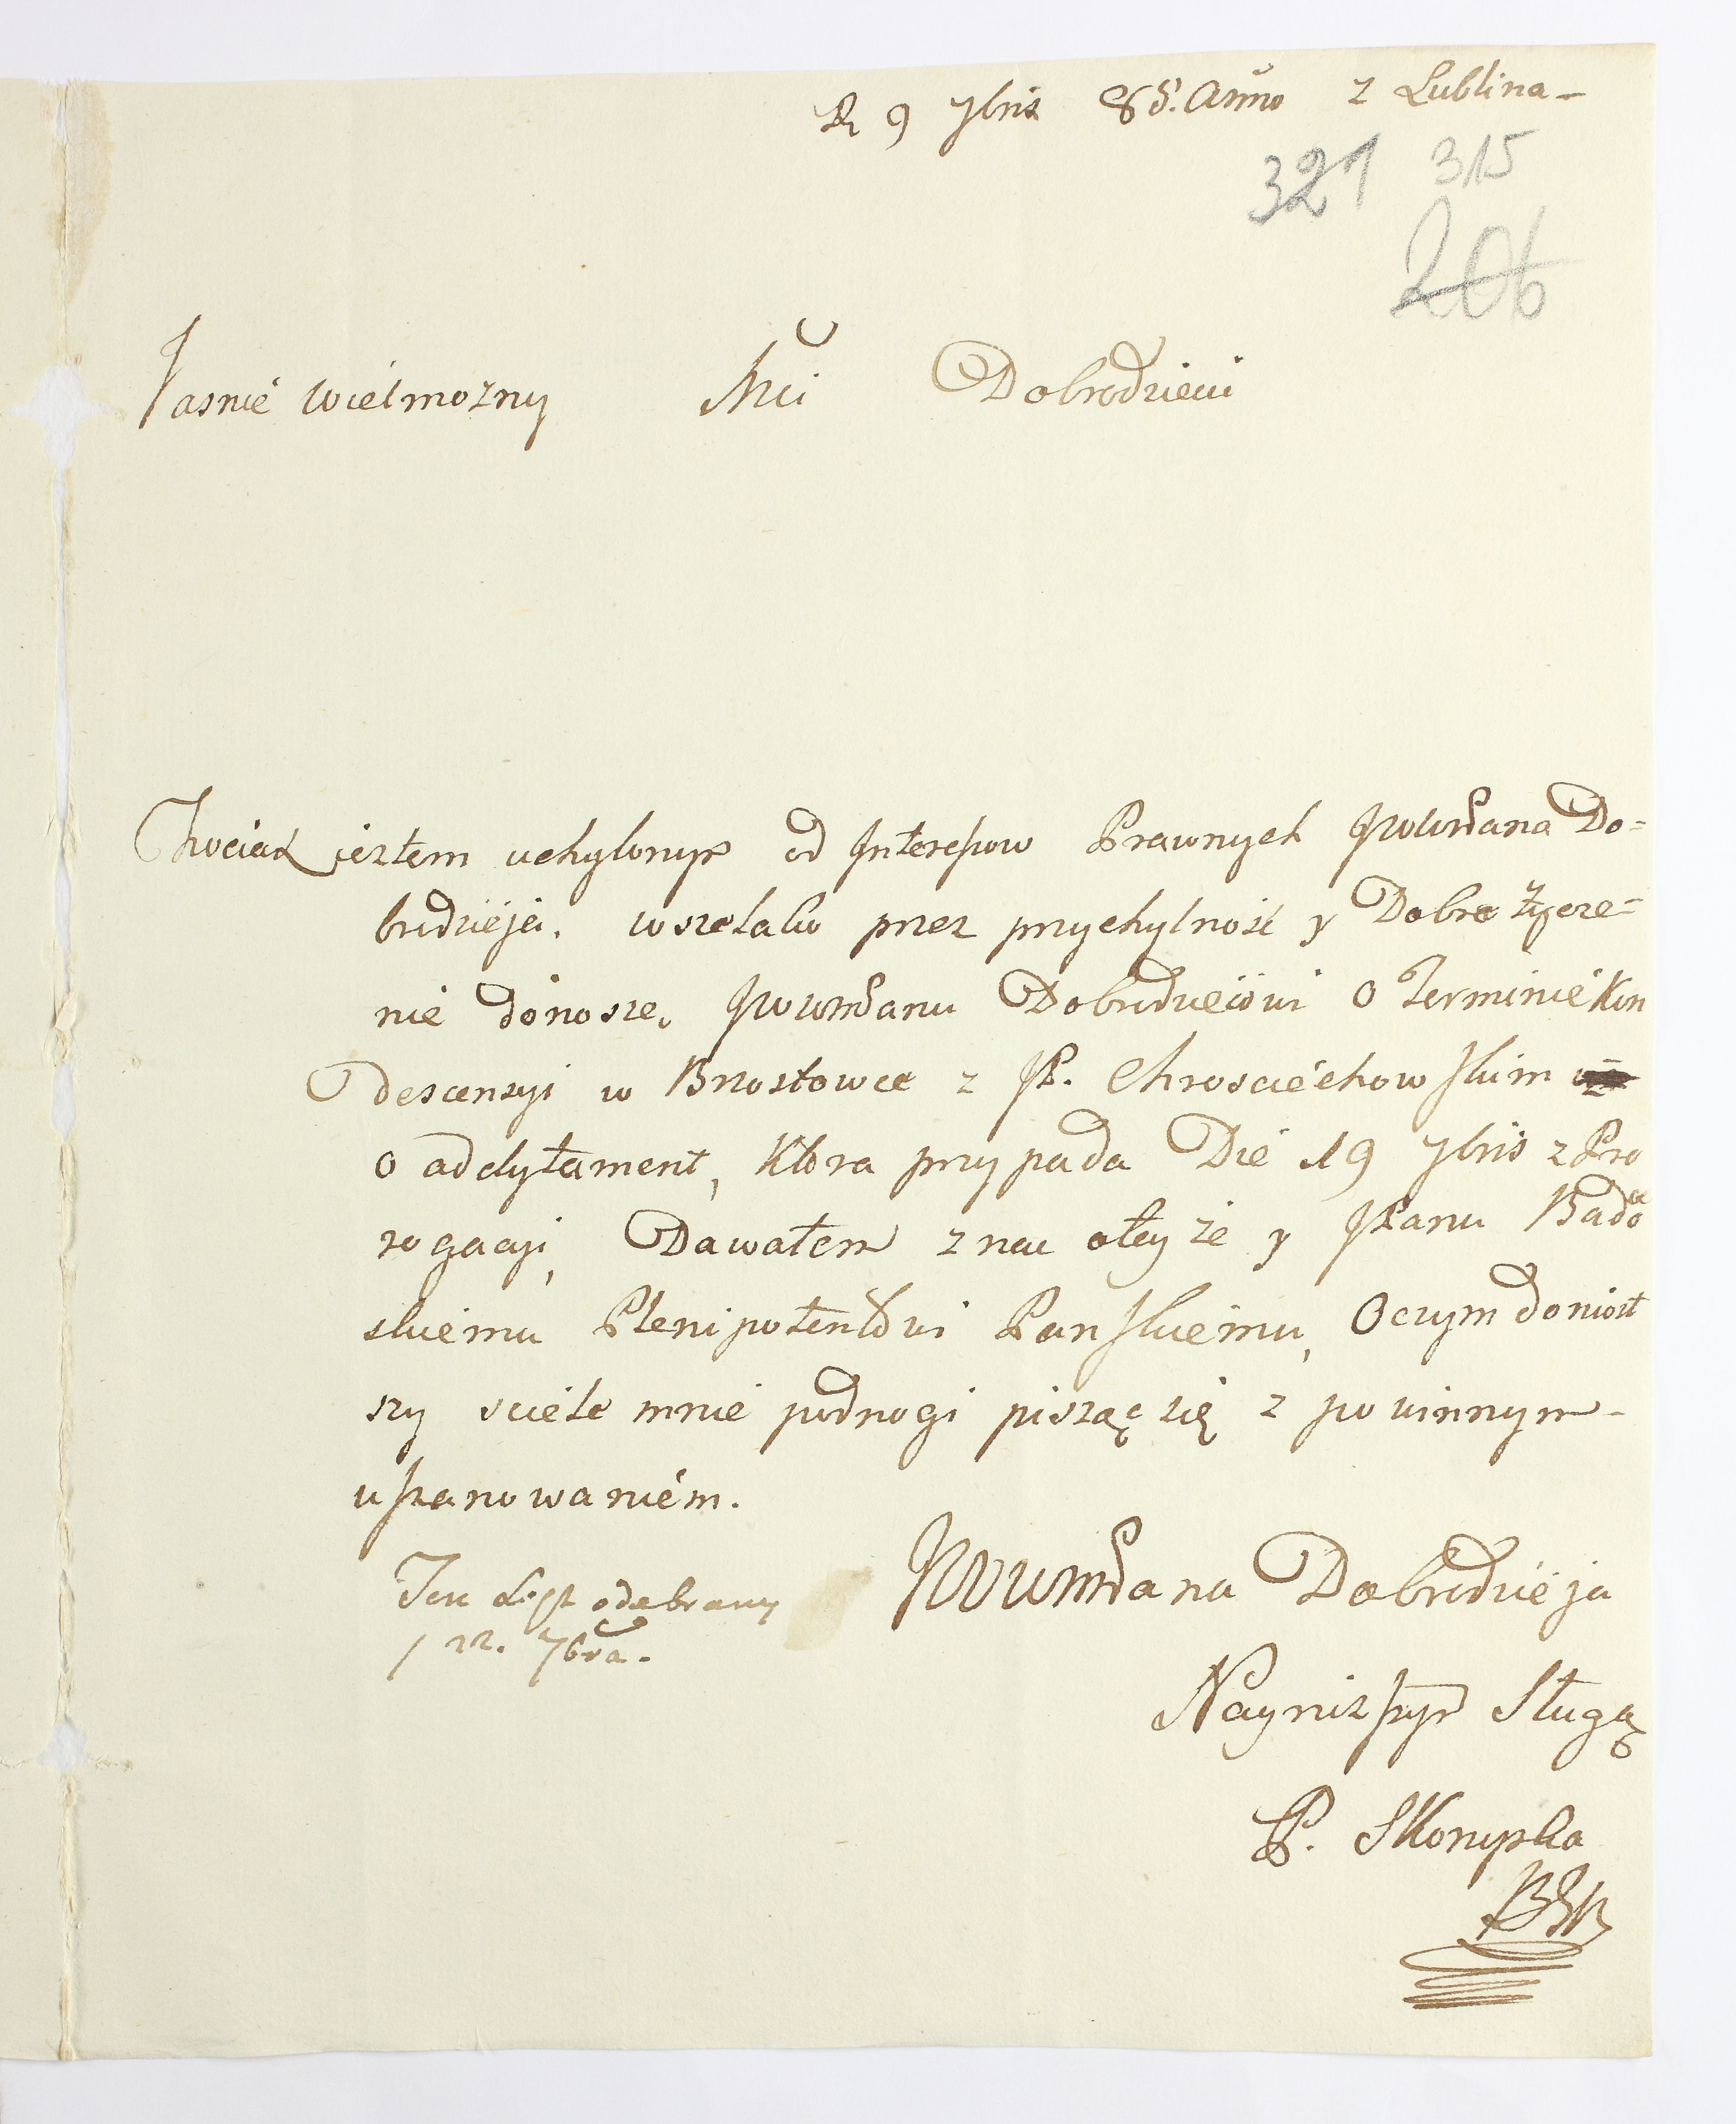 D. 9 7bris 85. Anno z Lublina –
321 315
206
Jasnie Wielmozny Mci Dobrodzieiu
Chociaz iestem uchylonym od Jnteressow Prawnych JWWMPana Do=
brodzieja. wszelako przez przychylność y Dobre życze=
nie donosze. JWWMPanu Dobrodzieiowi o Terminie Kon
Descensyi w Brzostowce z JP. Chrosciechowskim
o addytament, Ktora przypada Die 19 7bris z Pro
rogacyi, Dawałem znac otey że y JPanu Bado
skiemu Plenipotentowi Panskiemu, Oczym doniosł
szy sciele mnie podnogi pisząc się z powinnym –
uszanowaniem.
JWWMPana Dobrodzieja
Ten List odebrany
22. 7bra.
Nayniszym Sługą
P. Skorupka